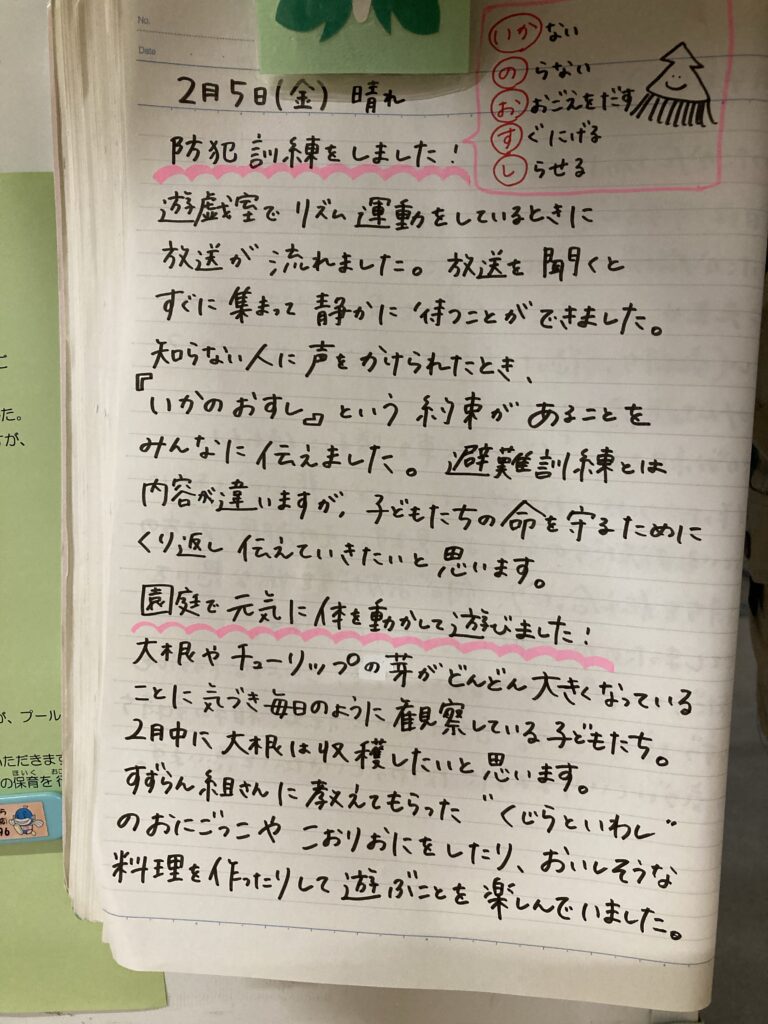 No.
Date
いかない
のらない
おおごえをだす
すぐにげる
しらせる
2月5日(金) 晴れ
防犯訓練をしました!
遊戯室でリズム運動をしているときに
放送が流れました。放送を聞くと
すぐに集まって静かに待つことができました。
知らない人に声をかけられたとき、
『いかのおすし』という約束があることを
みんなに伝えました。避難訓練とは
内容が違いますが、子どもたちの命を守るために
くり返し伝えていきたいと思います。
園庭で元気に体を動かして遊びました!
大根やチューリップの芽がどんどん大きくなっている
ことに気づき毎日のように観察している子どもたち。
2月中に大根は収穫したいと思います。
すずらん組さんに教えてもらった"くじらといわし"
のおにごっこやこおりおにをしたり、おいしそうな
料理を作ったりして遊ぶことを楽しんでいました。
た。
が、
が、プール
いただきます
の保育を
ほいく